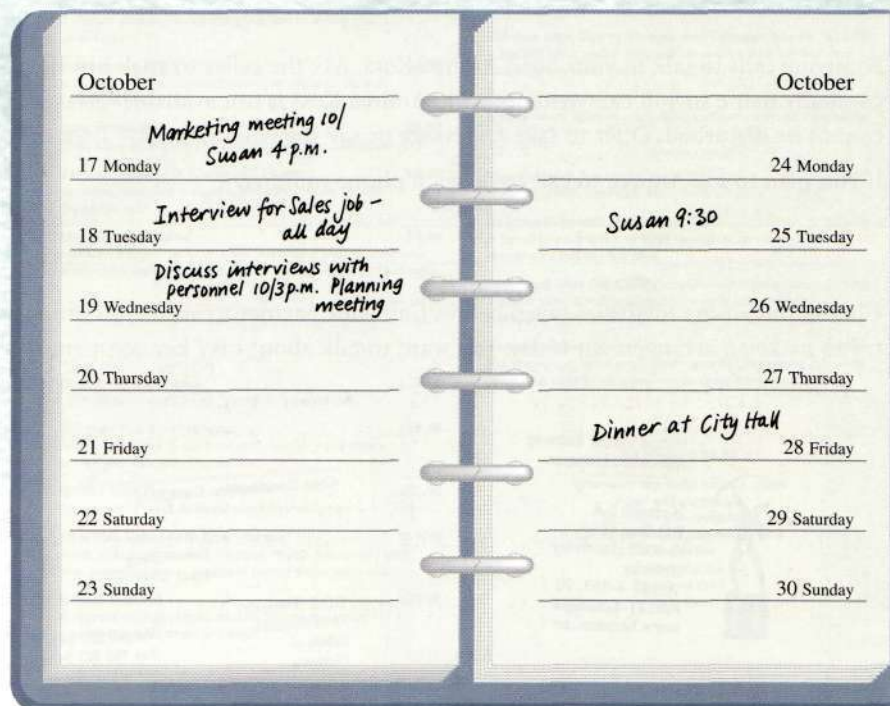 October
Marketing meeting 10/
Susan 4 p.m.
17 Monday
Interview for Sales job –
all day
18 Tuesday
Discuss interviews with
personnel 10/3p.m. Planning
meeting
19 Wednesday
20 Thursday
21 Friday
22 Saturday
23 Sunday
October
24 Monday
Susan 9:30
25 Tuesday
26 Wednesday
27 Thursday
Dinner at City Hall
28 Friday
29 Saturday
30 Sunday